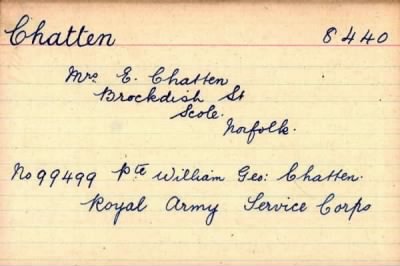 Chatten 8440
Mrs E. Chatten
Brockdish St
Scole.
Norfolk.
No 99499 Pte William Geo: Chatten.
Royal Army Service Corps